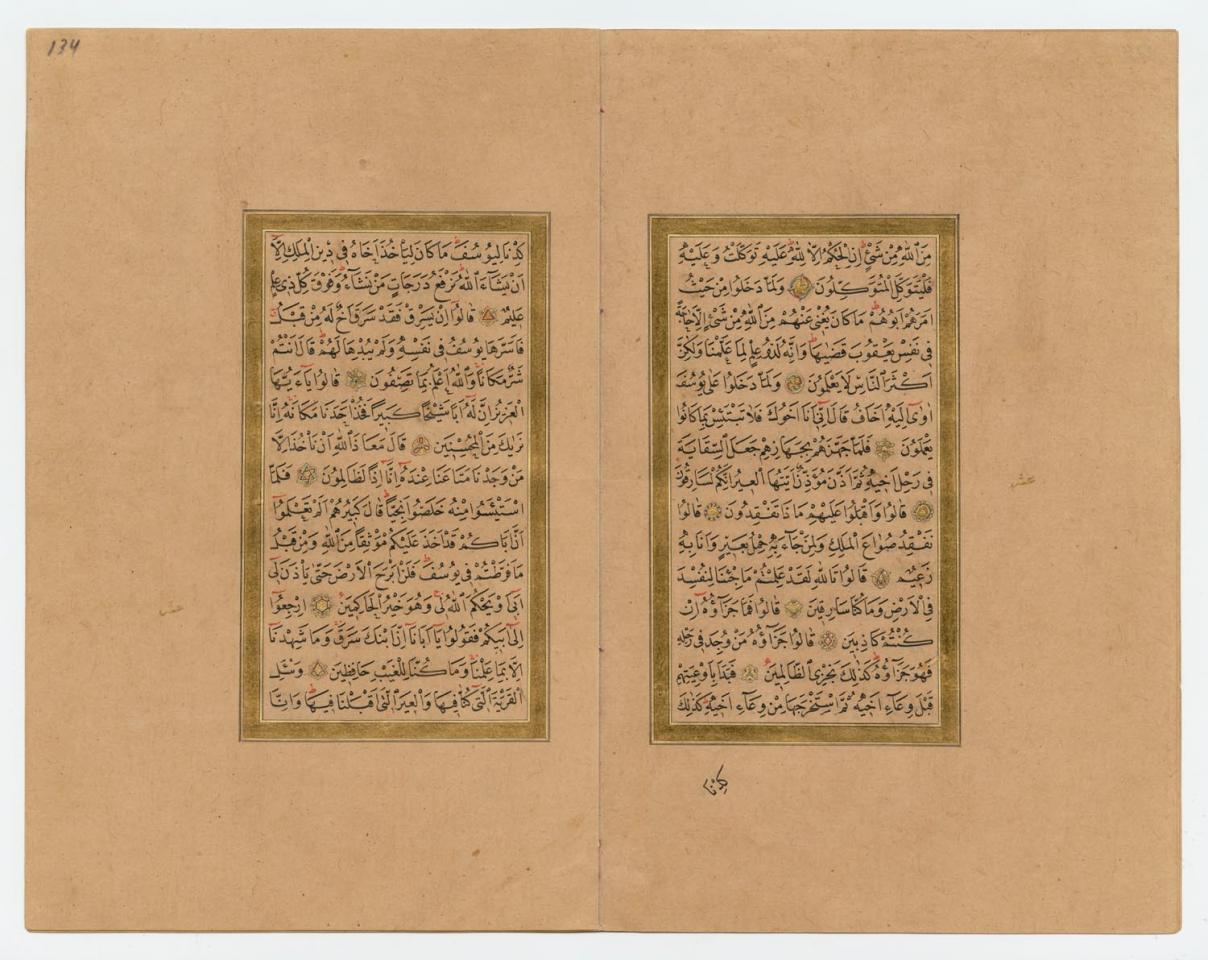 مِنَ اللّٰهِ مِنْ شَيْءٍ اِنِ الْحُكْمُ اِلَّا لِلّٰهِ عَلَيْهِ تَوَكَّلْتُ وَعَلَيْهِ
فَلْيَتَوَكَّلِ الْمُتَوَكِّلُونَ وَلَمَّا دَخَلُوا مِنْ حَيْثُ
اَمَرَهُمْ اَبُوهُمْ مَا كَانَ يُغْنِى عَنْهُمْ مِنَ اللّٰهِ مِنْ شَيْءٍ اِلَّا حَاجَةً
فِى نَفْسِ يَعْقُوبَ قَضٰيهَا وَاِنَّهُ لَذُو عِلْمٍ لِمَا عَلَّمْنَاهُ وَلٰكِنَّ
اَكْثَرَ النَّاسِ لَا يَعْلَمُونَ وَلَمَّا دَخَلُوا عَلٰى يُوسُفَ
اٰوٰى اِلَيْهِ اَخَاهُ قَالَ اِنِّى اَنَا اَخُوكَ فَلَا تَبْتَئِسْ بِمَا كَانُوا
يَعْمَلُونَ فَلَمَّا جَهَّزَهُمْ بِجَهَازِهِمْ جَعَلَ السِّقَايَةَ
فِى رَحْلِ اَخِيهِ ثُمَّ اَذَّنَ مُؤَذِّنٌ اَيَّتُهَا الْعِيرُ اِنَّكُمْ لَسَارِقُونَ
قَالُوا وَاَقْبَلُوا عَلَيْهِمْ مَاذَا تَفْقِدُونَ قَالُوا
نَفْقِدُ صُوَاعَ الْمَلِكِ وَلِمَنْ جَاءَ بِهِ حِمْلُ بَعِيرٍ وَاَنَا بِهِ
زَعِيمٌ قَالُوا تَاللّٰهِ لَقَدْ عَلِمْتُمْ مَا جِئْنَا لِنُفْسِدَ
فِى الْاَرْضِ وَمَا كُنَّا سَارِقِينَ قَالُوا فَمَا جَزَاؤُهُ اِنْ
كُنْتُمْ كَاذِبِينَ قَالُوا جَزَاؤُهُ مَنْ وُجِدَ فِى رَحْلِهِ
فَهُوَ جَزَاؤُهُ كَذٰلِكَ نَجْزِى الظَّالِمِينَ فَبَدَاَ بِاَوْعِيَتِهِمْ
قَبْلَ وِعَاءِ اَخِيهِ ثُمَّ اسْتَخْرَجَهَا مِنْ وِعَاءِ اَخِيهِ كَذٰلِكَ
كِدْنَا
عشر
134
كِدْنَا لِيُوسُفَ مَا كَانَ لِيَاْخُذَ اَخَاهُ فِى دِينِ الْمَلِكِ اِلَّا
اَنْ يَشَاءَ اللّٰهُ نَرْفَعُ دَرَجَاتٍ مَنْ نَشَاءُ وَفَوْقَ كُلِّ ذِى عِلْمٍ
عَلِيمٌ قَالُوا اِنْ يَسْرِقْ فَقَدْ سَرَقَ اَخٌ لَهُ مِنْ قَبْلُ
فَاَسَرَّهَا يُوسُفُ فِى نَفْسِهِ وَلَمْ يُبْدِهَا لَهُمْ قَالَ اَنْتُمْ
شَرٌّ مَكَانًا وَاللّٰهُ اَعْلَمُ بِمَا تَصِفُونَ قَالُوا يَاءَيُّهَا
الْعَزِيزُ اِنَّ لَهُ اَبًا شَيْخًا كَبِيرًا فَخُذْ اَحَدَنَا مَكَانَهُ اِنَّا
نَرٰيكَ مِنَ الْمُحْسِنِينَ قَالَ مَعَاذَ اللّٰهِ اَنْ نَاْخُذَ اِلَّا
مَنْ وَجَدْنَا مَتَاعَنَا عِنْدَهُ اِنَّا اِذًا لَظَالِمُونَ فَلَمَّا
اسْتَيْئَسُوا مِنْهُ خَلَصُوا نَجِيًّا قَالَ كَبِيرُهُمْ اَلَمْ تَعْلَمُوا
اَنَّ اَبَاكُمْ قَدْ اَخَذَ عَلَيْكُمْ مَوْثِقًا مِنَ اللّٰهِ وَمِنْ قَبْلُ
مَا فَرَّطْتُمْ فِى يُوسُفَ فَلَنْ اَبْرَحَ الْاَرْضَ حَتّٰى يَاْذَنَ لِى
اَبِى اَوْ يَحْكُمَ اللّٰهُ لِى وَهُوَ خَيْرُ الْحَاكِمِينَ اِرْجِعُوا
اِلٰى اَبِيكُمْ فَقُولُوا يَا اَبَانَا اِنَّ ابْنَكَ سَرَقَ وَمَا شَهِدْنَا
اِلَّا بِمَا عَلِمْنَا وَمَا كُنَّا لِلْغَيْبِ حَافِظِينَ وَسْئَلِ
الْقَرْيَةَ الَّتِى كُنَّا فِيهَا وَالْعِيرَ الَّتِى اَقْبَلْنَا فِيهَا وَاِنَّا
عشر